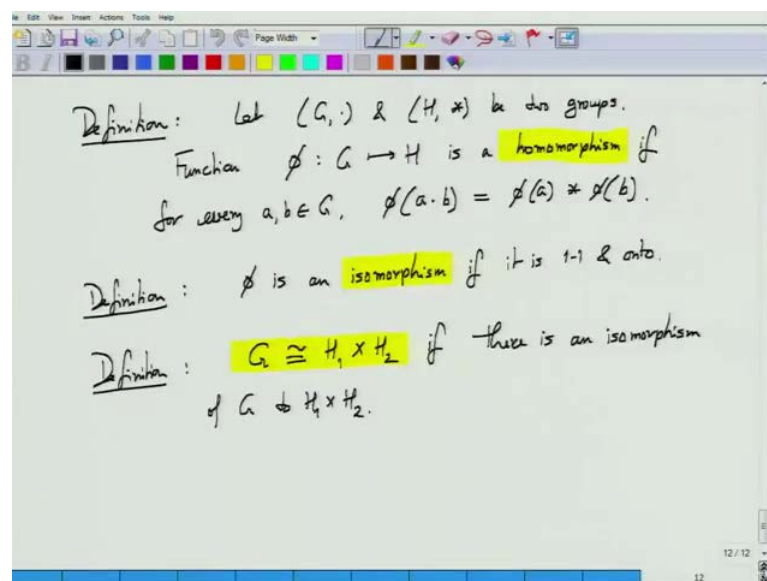 Edit View Insert Actions Tools Help
Page Width
B I
Definition: Let (G, ·) & (H, *) be two groups.
Function ϕ : G ↦ H is a homomorphism if
for every a, b ∈ G, ϕ(a · b) = ϕ(a) * ϕ(b).
Definition : ϕ is an isomorphism if it is 1-1 & onto.
Definition : G ≅ H₁ × H₂ if there is an isomorphism
of G to H₁ × H₂.
12 / 12
12